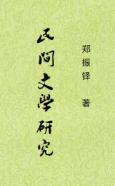 民间文学研究
郑振铎 著